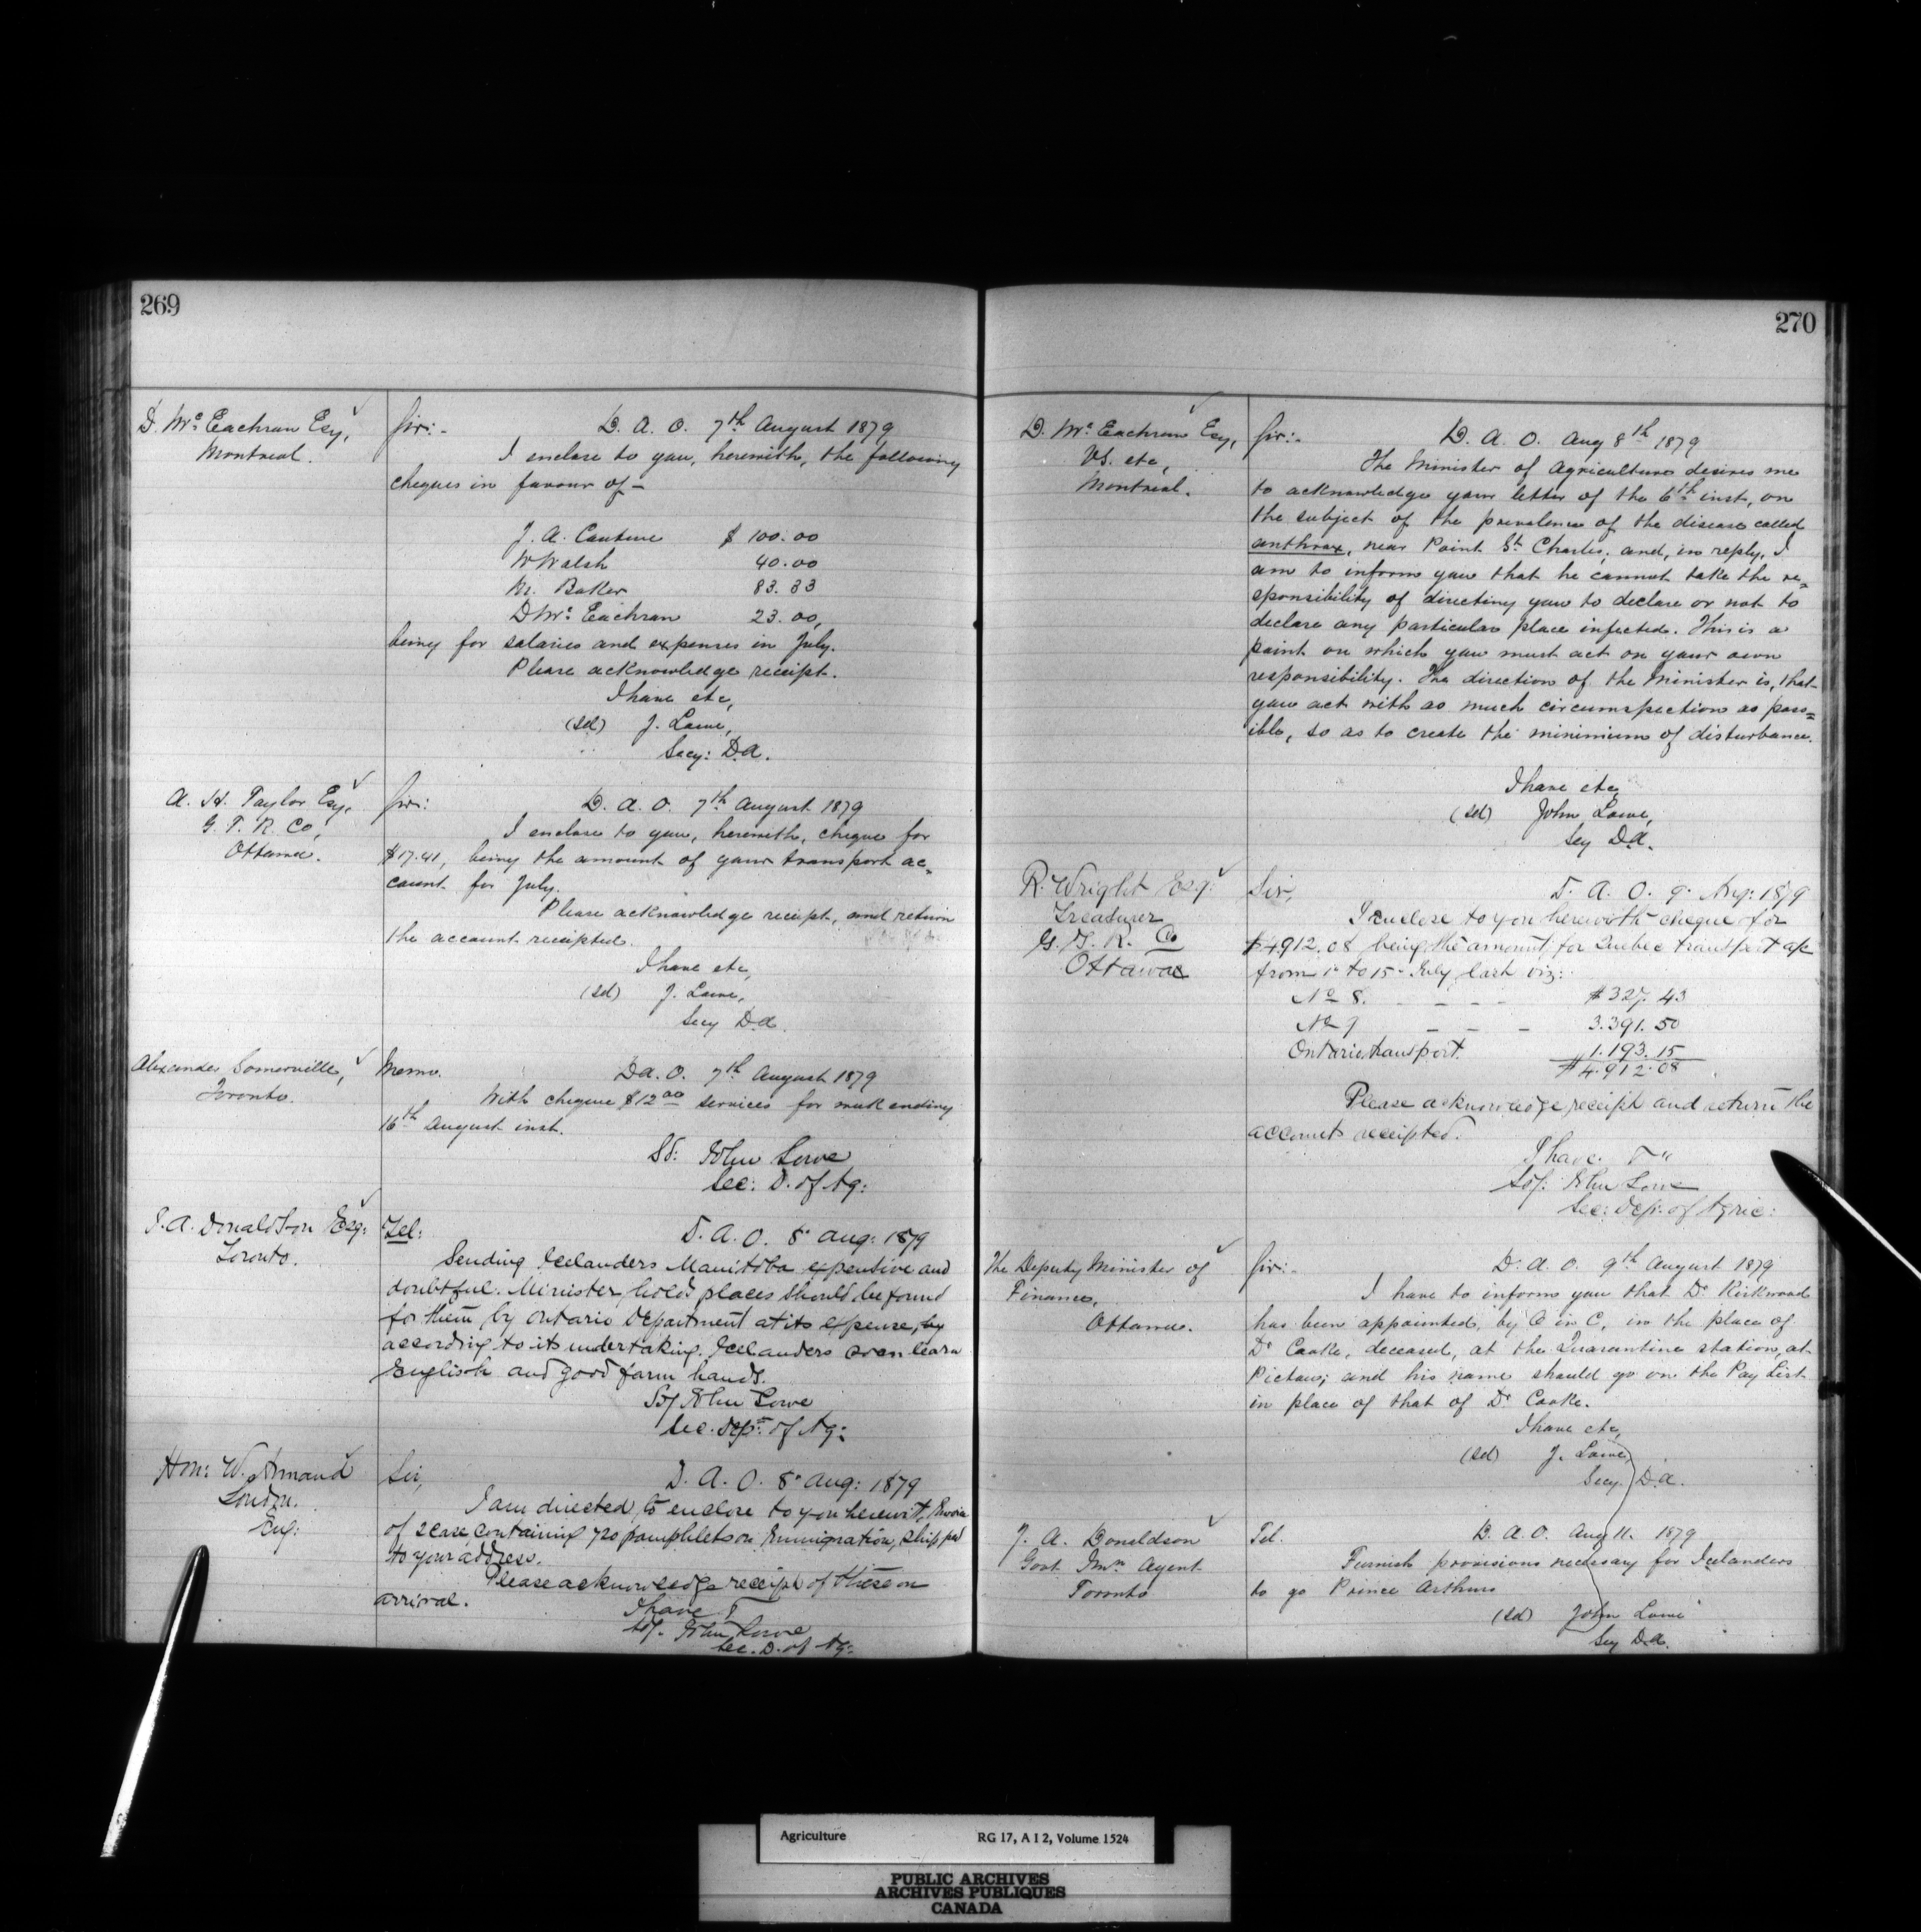 269
D. McEachran Esq,
Montreal.
Sir:- D. A. O. 7th August 1879
I enclose to you, herewith, the following
cheques in favour of -
J. A. Couture $ 100.00
W Walsh 40.00
M. Baker 83.33
D McEachran 23.00,
being for salaries and expenses in July.
Please acknowledge receipt.
I have etc,
(sd) J. Lowe,
Secy: D.A.
A. H. Taylor Esq,
G. T. R. Co,
Ottawa.
Sir: D. A. O. 7th August 1879
I enclose to you, herewith, cheque for
$17.41, being the amount of your transport ac=
count for July.
Please acknowledge receipt, and return
the account receipted.
I have etc,
(sd) J. Lowe,
Secy D.A.
Alexander Somerville,
Toronto.
Memo. D.A. O. 7th August 1879
With cheque $12 00 services for week ending
16th August inst.
Sd: John Lowe
Sec: D. of Ag:
J. A. Donaldson Esq:
Toronto.
Tel: D. A. O. 8" Aug: 1879
Sending Icelanders Manitoba expensive and
doubtful. Minister holds places should be found
for them by Ontario Department at its expense, by
according to its undertaking. Icelanders soon learn
English and good farm hands.
Sd/ John Lowe
Sec. Dept: of Ag:
Hon: W. Annand
London.
Eng:
Sir, D. A. O. 8" Aug: 1879
I am directed to enclose to you herewith, Invoice
of 2 case containing 720 pamphlets on Immigration, shipped
to your address.
Please acknowledge receipt of these on
arrival.
I have &
Sd/. John Lowe
Sec. D. of Ag:
270
D. McEachran Esq,
V.S. etc,
Montreal.
Sir:- D. A. O. Aug 8th 1879
The Minister of Agriculture desires me
to acknowledge your letter of the 6th inst, on
the subject of the prevalence of the disease called
anthrax, near Point St Charles; and, in reply, I
am to inform you that he cannot take the re=
sponsibility of directing you to declare or not to
declare any particular place infected. This is a
point on which you must act on your own
responsibility. The direction of the Minister is, that
you act with as much circumspection as poss=
ible, so as to create the minimum of disturbance.
I have etc,
(sd) John Lowe,
Secy D.A.
R. Wright Esq:
Treasurer
G. T. R. Co
Ottawa
Sir, D. A. O. 9" Aug: 1879
I enclose to you herewith cheque for
$4.912.08 being the amount for Quebec transport a/c
from 1" to 15" July last viz:
No 8. - - - - $327.43
No 9 - - - 3.391.50
Ontario transport. 1.193.15
$4.912.08
Please acknowledge receipt and return the
accounts receipted.
I have &"
Sd/: John Lowe
Sec: Dep: of Agric:
The Deputy Minister of
Finance,
Ottawa.
Sir:- D. A. O. 9th August 1879
I have to inform you that Dr Kirkwood
has been appointed, by O in C, in the place of
Dr Cooke, deceased, at the Quarantine station, at
Pictou; and his name should go on the Pay List
in place of that of Dr Cooke.
I have etc,
(sd) J. Lowe,
Secy D.A.
J. A. Donaldson
Govt Imn Agent
Toronto
Tel. D. A. O. Aug 11. 1879
Furnish provisions necessary for Icelanders
to go Prince Arthurs
(sd) John Lowe
Secy D.A.
Agriculture RG 17, A I 2, Volume 1524
PUBLIC ARCHIVES
ARCHIVES PUBLIQUES
CANADA